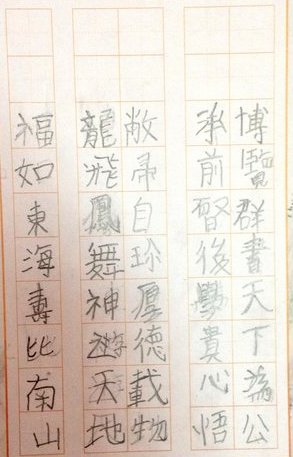 博覽群書天下為公
承前督後學貴心悟
敝帚自珍厚德載物
龍飛鳳舞神遊天地
福如東海壽比南山